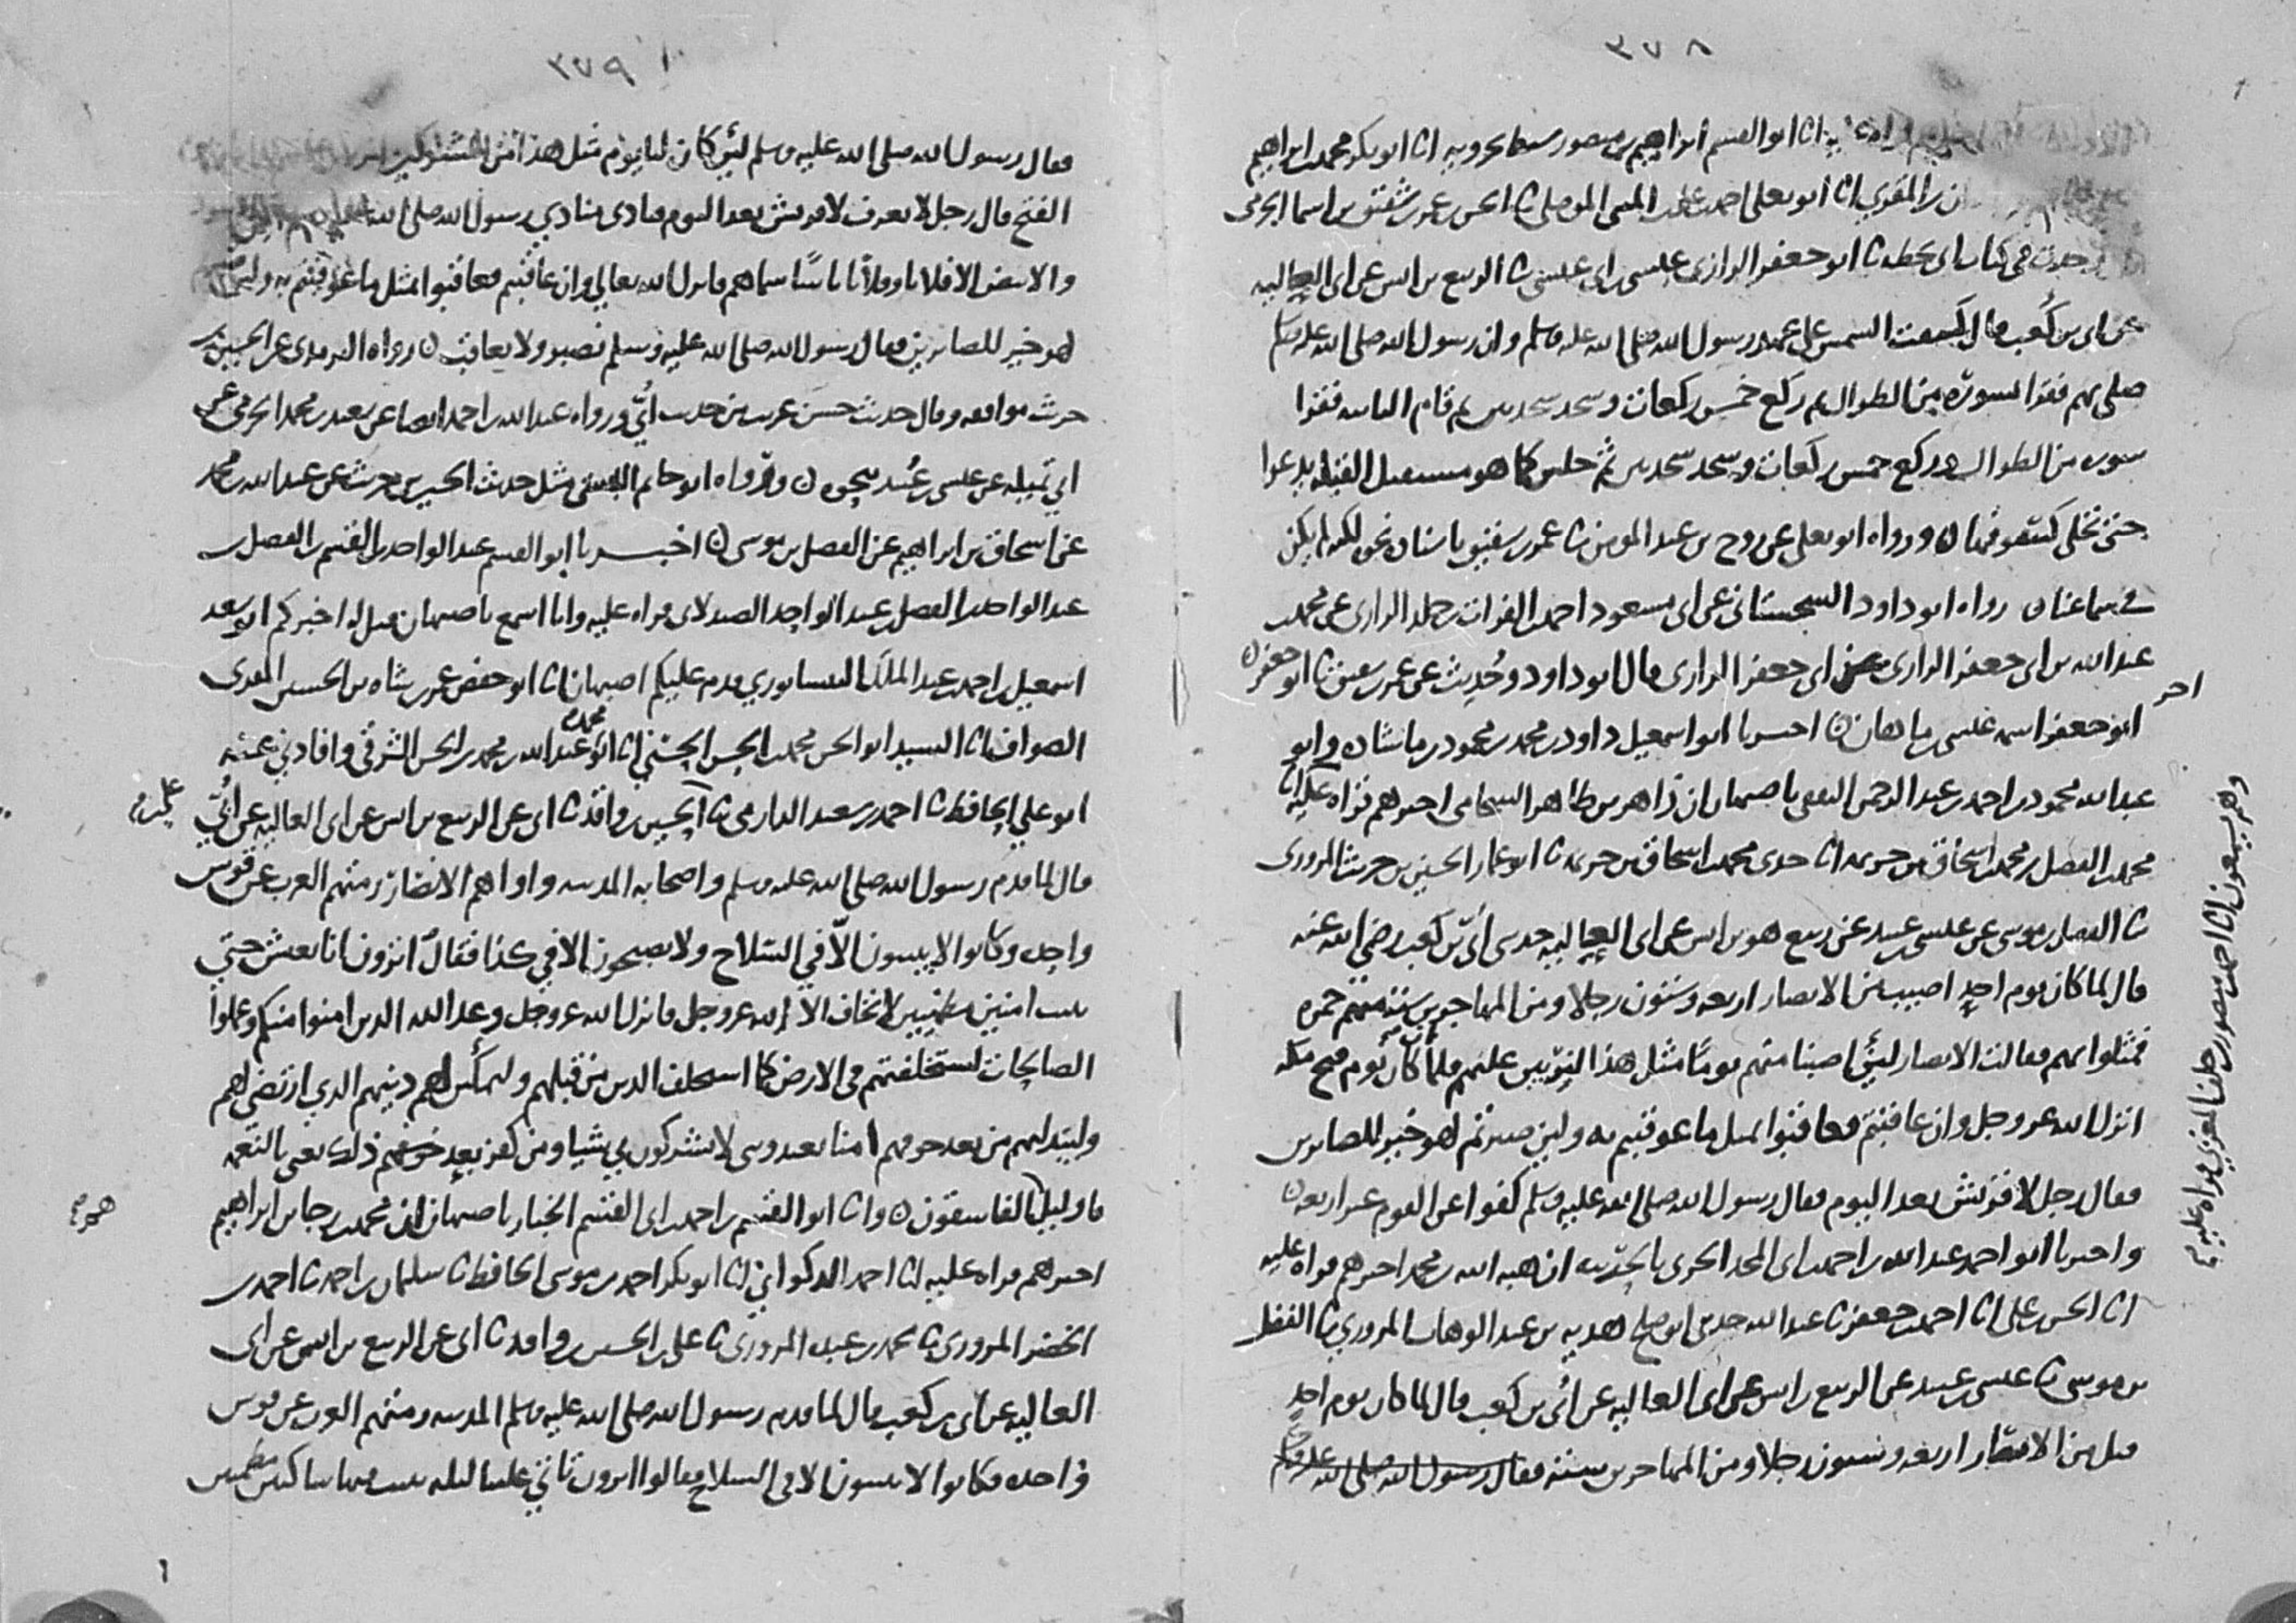 ٣٧٨
انا ابو القسم ابراهيم بن منصور سبط بحرويه انا ابو بكر محمد بن ابراهيم
المقري انا ابو يعلى احمد بن علي بن المثنى الموصلي نا الحسن بن عمر بن شقيق بن اسما الجرمي
في كتاب ابي بخطه نا ابو جعفر الرازي عيسى بن ابي عيسى نا الربيع بن انس عن ابي العاليه
عن ابي بن كعب قال كسفت الشمس على عهد رسول الله صلى الله عليه وسلم وان رسول الله صلى الله عليه وسلم
صلى بهم فقرا بسورة من الطوال ثم ركع خمس ركعات وسجد سجدتين ثم قام الثانيه فقرا
سوره من الطوال وركع خمس ركعات وسجد سجدتين ثم جلس كما هو مستقبل القبله يدعوا
حتى تجلى كسوفها ورواه ابو يعلى عن روح بن عبد المومن نا عمر بن شقيق باسناده نحوه لكنه لم يكن
في سماعنا رواه ابو داود السجستاني عن ابي مسعود احمد بن الفرات بن خالد الرازي عن محمد بن
عبد الله بن ابي جعفر الرازي عن ابي جعفر الرازي قال ابو داود وحُدِثت عن عمر بن شقيق نا ابو جعفر
اخر
ابو جعفر اسمه عيسى بن ماهان اخبرنا ابو اسمعيل داود بن محمد بن محمود بن ماشاده وابو
عبد الله محمود بن احمد بن عبد الرحمن الثقفي باصبهان ان زاهر بن طاهر الشحامي اخبرهم قراه عليه انا
محمد بن الفضل بن محمد بن اسحاق بن خزيمه انا جدي محمد بن اسحاق بن خزيمه نا ابو عمار الحسين بن حريث المروزي
نا الفضل بن موسى عن عيسى بن عبيد عن ربيع هو بن انس عن ابي العاليه حدثني أبيّ بن كعب رضي الله عنه
قال لما كان يوم احدٍ اصيب من الانصار اربعه وستون رجلا ومن المهاجرين ستة منهم حمزه
فمثلوا بهم فقالت الانصار لئن اصبنا منهم يومًا مثل هذا لنربين عليهم فلما كان يوم فتح مكه
انزل الله عز وجل وان عاقبتم فعاقبوا بمثل ما عوقبتم به ولين صبرتم لهو خير للصابرين
فقال رجل لا قريش بعد اليوم فقال رسول الله صلى الله عليه وسلم كفوا عن القوم غير اربعه
واخبرنا ابو احمد عبد الله بن احمد بن ابي المجد الحربي بالحربيه ان هبه الله بن محمد اخبرهم قراه عليه
انا الحسن بن علي انا احمد بن جعفر نا عبد الله حدثني ابو صالح هديه بن عبد الوهاب المروزي نا الفضل
بن موسى نا عيسى بن عبيد عن الربيع بن انس عن ابي العاليه عن أبي بن كعب قال لما كان يوم احد
قتل من الانصار اربعه وستون رجلا ومن المهاجرين ستة فقال رسول الله صلى الله عليه وسلم
وهم يسمعون انا احمد بن منصور بن خلف المغربي قراه عليه
٣٧٩
فقال رسول الله صلى الله عليه وسلم لئن كان لنا يوم مثل هذا من المشركين
الفتح قال رجل لا يعرف لا قريش بعد اليوم فنادى منادي رسول الله صلى الله
والابيض الا فلانا وفلانا ناسًا سماهم فانزل الله تعالى وان عاقبتم فعاقبوا بمثل ما عوقبتم به ولين
لهو خير للصابرين فقال رسول الله صلى الله عليه وسلم نصبر ولا نعاقب رواه الترمذي عن الحسين بن
حريث موافقه وقال حديث حسن غريب من حديث أبيّ ورواه عبد الله بن احمد ايضا عن سعيد بن محمد الجرمي عن
ابي تميله عن عيسى بن عُبيد بنحوه ورواه ابو حاتم البستي مثل حديث الحسين بن حريث عن عبد الله بن محمد
عن اسحاق بن ابراهيم عن الفضل بن موسى اخبرنا ابو القسم عبد الواحد بن القسم بن الفضل بن
عبد الواحد بن الفضل بن عبد الواحد الصيدلاني قراه عليه وانا اسمع باصبهان قيل له اخبركم ابو سعد
اسمعيل بن احمد بن عبد الملك النيسابوري قدم عليكم اصبهان انا ابو حفص عمر بن شاه بن الحسين المقري
الصواف انا السيد ابو الحسن محمد بن الحسن الحسني انا ابو محمد عبد الله بن محمد بن الحسن الشرقي وافادني عنه
ابو علي الحافظ نا احمد بن سعيد الدارمي نا علي بن الحسين بن واقد نا ابي عن الربيع بن انس عن ابي العاليه عن أبيّ
قال لما قدم رسول الله صلى الله عليه وسلم واصحابه المدينه واواهم الانصار رمتهم العرب عن قوس
واحده وكانوا لا يبيتون الّا في السلاح ولا يصبحون الا في كذا فقال اترون انا نعيش حتي
نبيت امنين مطمئنين لا نخاف الا الله عز وجل فانزل الله عز وجل وعد الله الذين امنوا منكم وعملوا
الصالحات لنستخلفنهم في الارض كما استخلف الذين من قبلهم وليمكنن لهم دينهم الذي ارتضى لهم
وليبدلنهم من بعد خوفهم امنا يعبدونني لا يشركون بي شيا ومن كفر بعد ذلك يعني بالنعمه
فاوليك الفاسقون وانا ابو القسم بن احمد بن ابي القسم الخباز باصبهان ان محمد بن رجا بن ابراهيم
اخبرهم قراه عليه انا احمد الذكواني انا ابو بكر احمد بن موسى الحافظ نا سليمان بن احمد نا احمد بن
الخضر المروزي نا محمد بن عبده المروزي نا علي بن الحسين بن واقد نا ابي عن الربيع بن انس عن ابي
العاليه عن ابي بن كعب قال لما قدم رسول الله صلى الله عليه وسلم المدينه رمتهم العرب عن قوس
واحده فكانوا لا يبيتون الا في السلاح فقالوا اترون ناتي علينا ليله نبيت فيها ساكنين مطمئنين